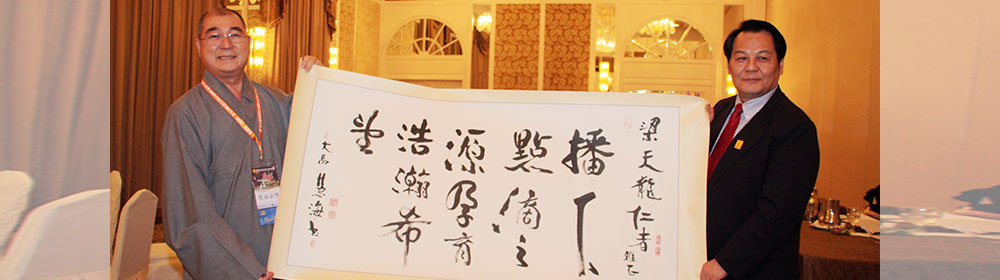 梁天龍仁者雅正
播下
點滴之
源孕育
浩瀚希
望
大馬慧海书